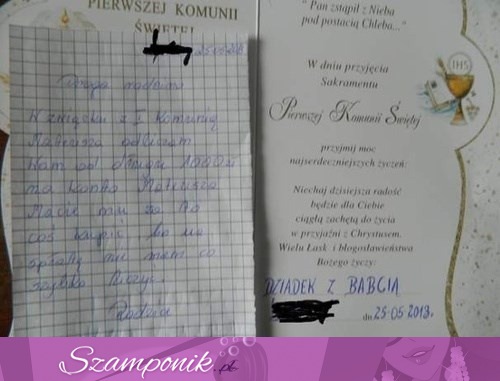 PIERWSZEJ KOMUNII
ŚWIĘTEJ
25.05.2013
Droga rodzino
W związku z I Komunią
Mateusza odliczam
Wam od długu 1000zł
na konto Mateusza
Macie mu za to
coś kupić, bo na
spłatę nie mam co
szybko liczyć.
" Pan zstąpił z Nieba
pod postacią Chleba..."
W dniu przyjęcia
Sakramentu
Pierwszej Komunii Świętej
przyjmij moc
najserdeczniejszych życzeń:
Niechaj dzisiejsza radość
będzie dla Ciebie
ciągłą zachętą do życia
w przyjaźni z Chrystusem.
Wielu Łask i błogosławieństwa
Bożego życzy:
DZIADEK Z BABCIĄ
dn 25-05 2013r.
IHS
Szamponik.pl